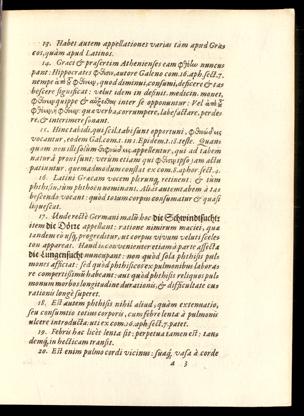 13. Habet autem appellationes varias tàm apud Græ
cos, quàm apud Latinos.
14. Græci & præsertim Athenienses eam nuncu
pant: Hippocrates autore Galeno com. 16. aph. sect. 7.
nempe quod diminui, consumi, deficere & ta
bescere significat: velut idem in definit. medicin. monet,
quippe & inter se opponuntur: Vel
quæ verba, corrumpere, labefactare, perde
re, & interimere sonant.
15. Hinc tabidi, qui scil. tabi sunt opportuni,
vocantur, eodem Gal. com. 1. in 1. Epidem. t. 18. teste. Quan
quam non illi solùm appellentur, qui ad tabem
naturâ proni sunt: verùm etiam qui ipso jam actu
patiuntur, quemadmodum constat ex com. 8. aphor. sect. 4.
16. Latini Græcam vocem plerunq; retinent, & tùm
phthisin, tùm phthoën nominant. Alias autem tabem à ta
bescendo vocant: quòd totum corpus consumatur & quasi
liquescat.
17. Unde rectè Germani malū hoc die Schwindsucht
item die Dörre appellant: ratione nimirum maciei, quæ
tandem eò usq; progreditur, ut corpus vivum veluti scele
ton appareat. Haud inconvenienter etiam à parte affecta
die Lungensucht nuncupant: non quòd sola phthisis pul-
mones afficiat: sed quòd phthisicos ex pulmonibus labora
re compertissimū habeant: aut quòd phthisis reliquos pul
monum morbos longitudine durationis, & difficultate cu-
rationis longè superet.
18. Est autem phthisis nihil aliud, quàm extenuatio,
seu consumtio totius corporis, cum febre lenta à pulmonis
ulcere introducta: uti ex com. 16. aph. sect. 7. patet.
19. Febris hæc licèt lenta sit: perpetua tamen est: tan-
demq́; in hecticam transit.
20. Est enim pulmo cordi vicinus: suaq́; vasa à corde
a 3